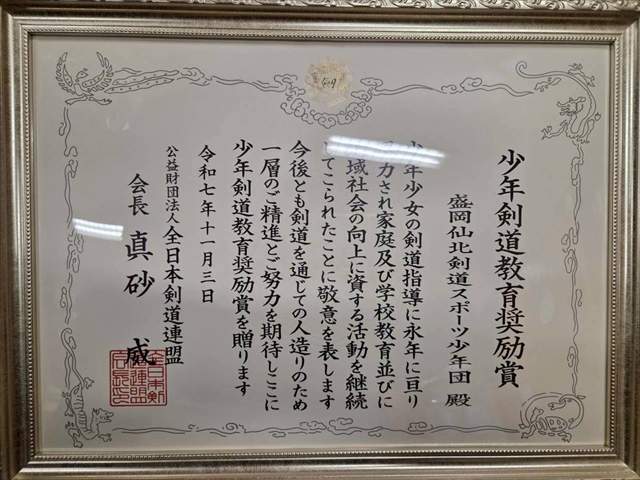 少年剣道教育奨励賞
盛岡仙北剣道スポーツ少年団 殿
少年少女の剣道指導に永年に亘り
力され家庭及び学校教育並びに
域社会の向上に資する活動を継続
てこられたことに敬意を表します
今後とも剣道を通じての人造りのため
一層のご精進とご努力を期待しここに
少年剣道教育奨励賞を贈ります
令和七年十一月三日
公益財団法人全日本剣道連盟
会長 真砂 威